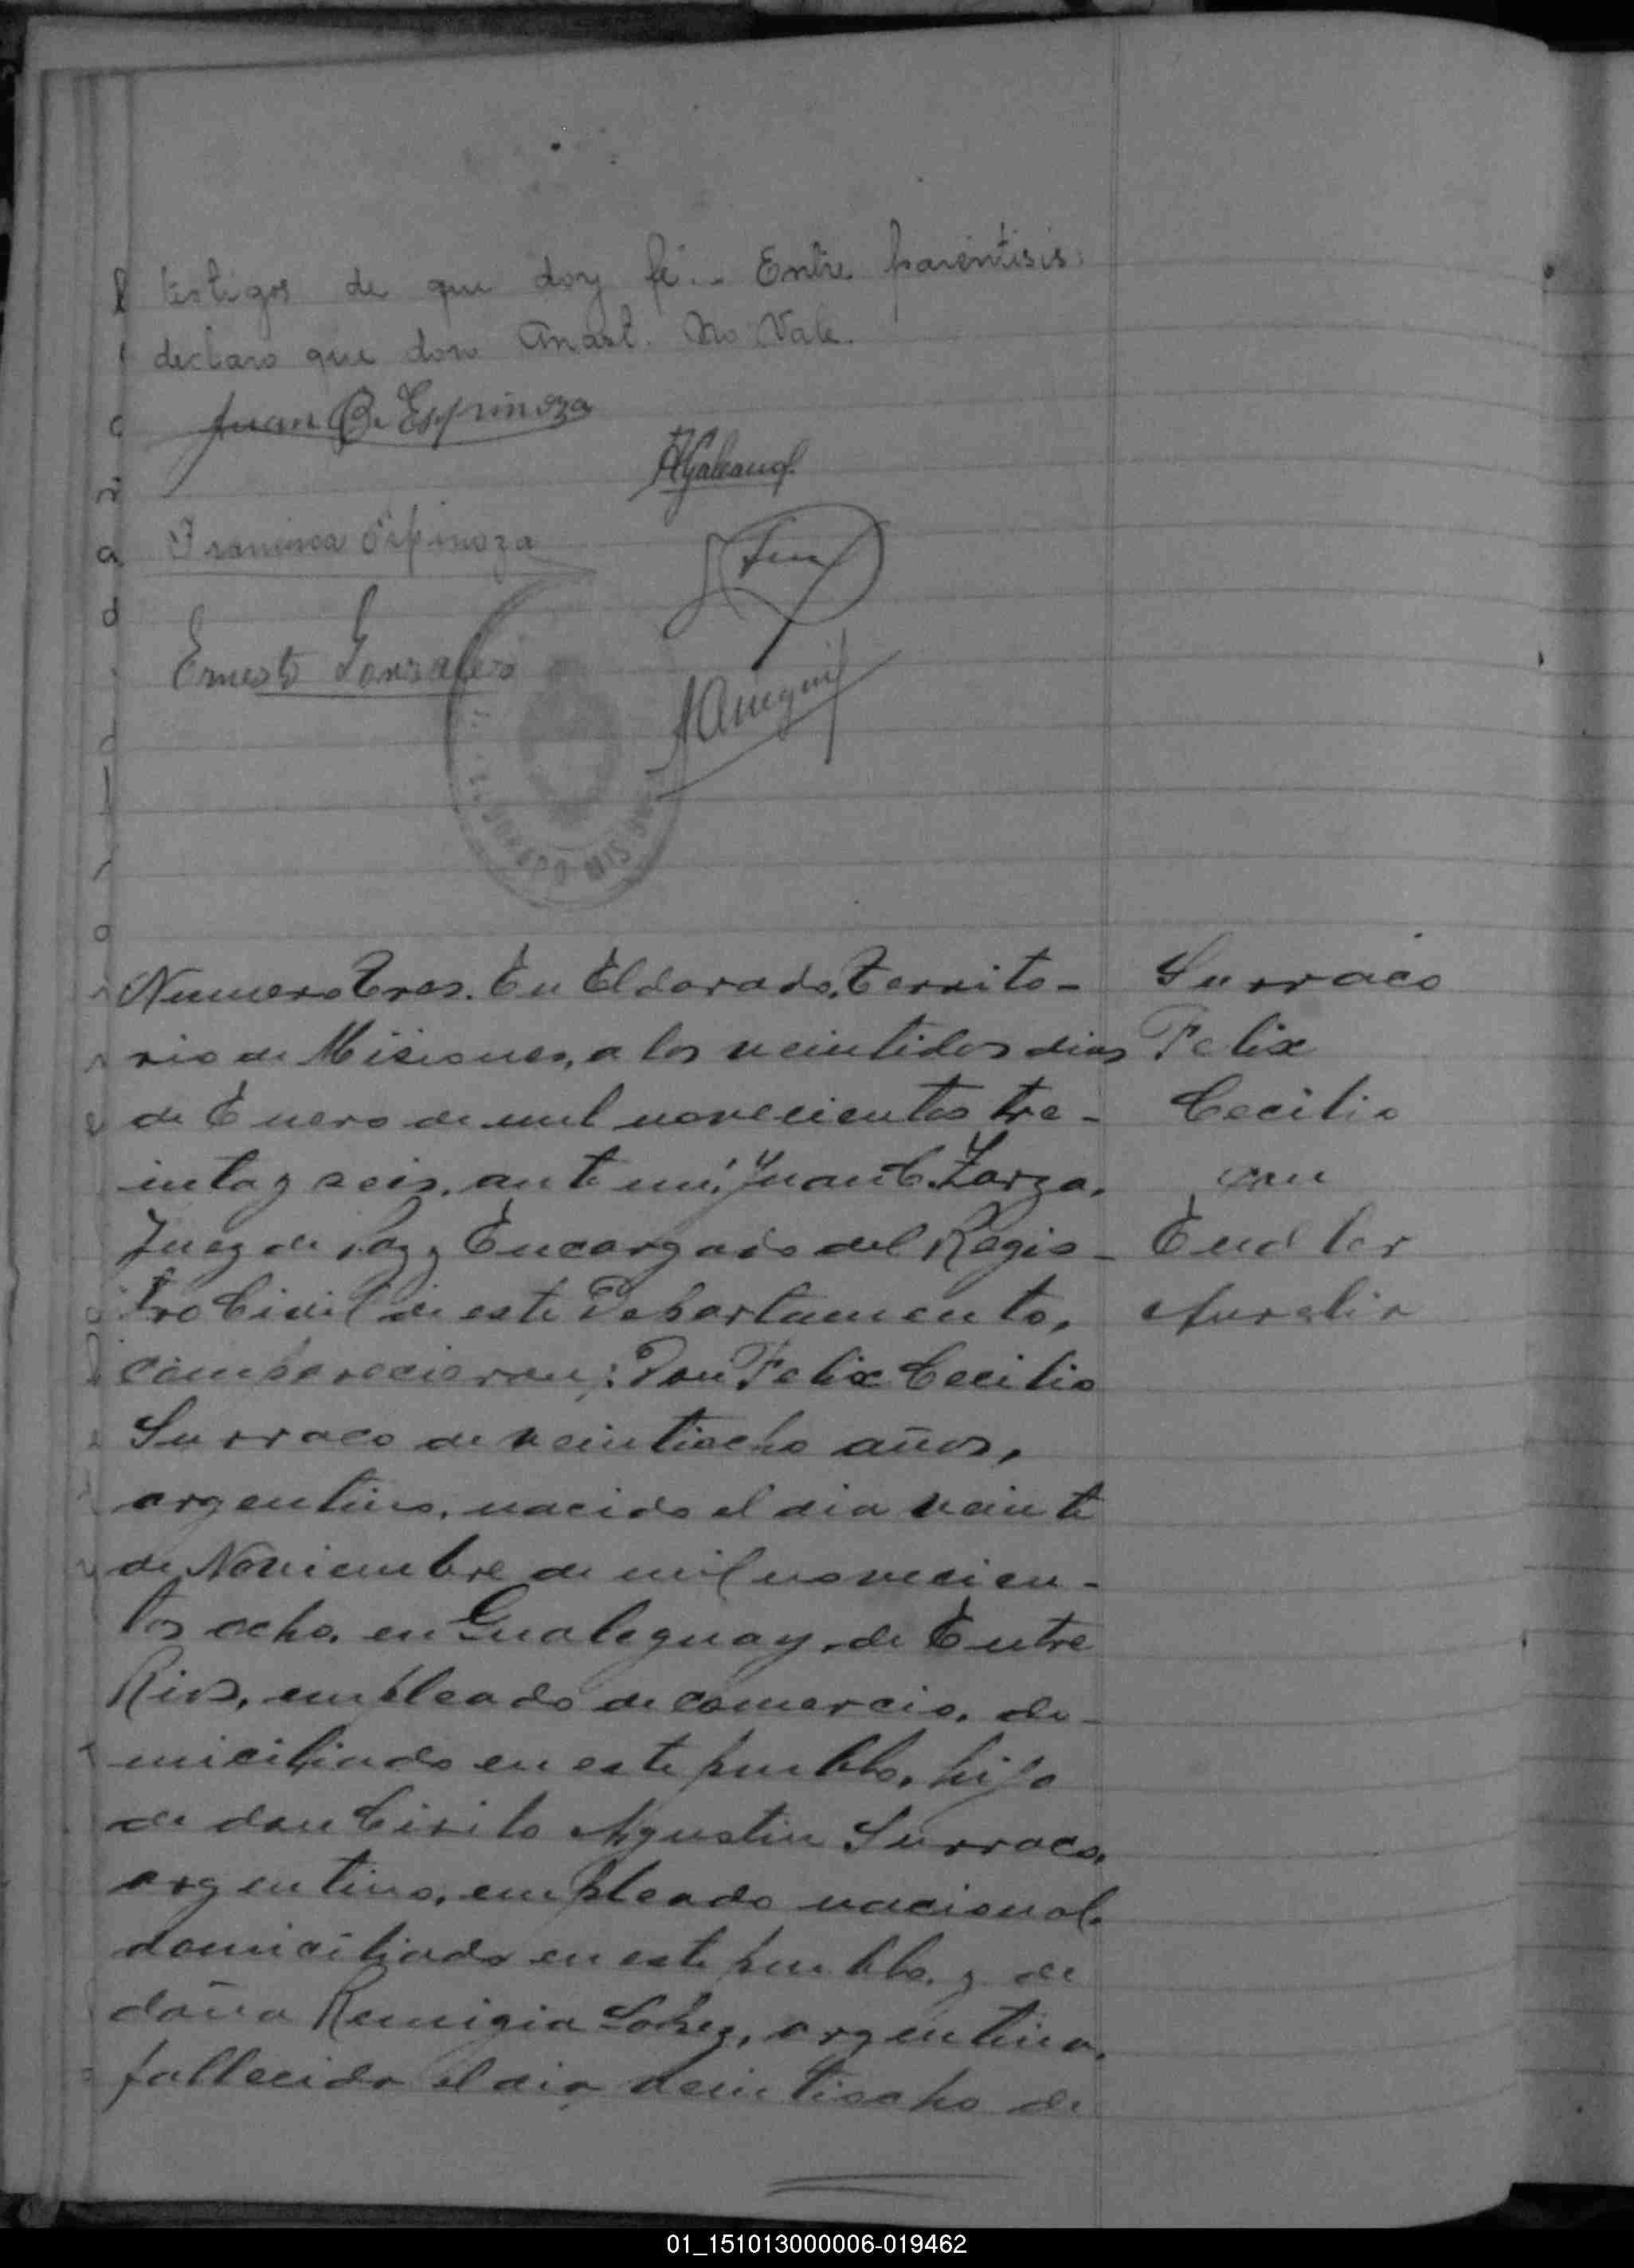 testigos de que doy fé.. Entre paréntisis:
declaro que don Anast. No Vale.
Juan B. Espinoza
AGaleano
Francisca Espinoza
Ernesto Gonzalez
Numero tres. En Eldorado, Territo-
rio de Misiones, a los veintidos dias
de Enero de mil novecientos tre-
inta y seis, ante mi: Juan C. Zarza,
Juez de Paz y Encargado del Regis-
tro Civil de este Departamento,
comparecieron: Don Felix Cecilio
Surraco de veintiocho años,
argentino, nacido el dia veinte
de Noviembre de mil novecien-
tos ocho, en Gualeguay, de Entre
Rios, empleado de comercio, do-
miciliado en este pueblo, hijo
de don Cirilo Agustin Surraco,
argentino, empleado nacional,
domiciliado en este pueblo, y de
doña Remigia Lopez, argentina,
fallecida el dia veintiocho de
Surraco
Felix
Cecilio
con
Endler
Aurelia
01_151013000006-019462